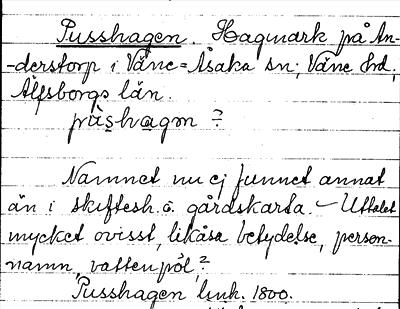 Pusshagen. Hagmark på An-
-derstorp i Väne-Åsaka sn; Väne hd,
Älfsborgs län.
pùshagm ?
Namnet nu ej funnet annat
än i skiftesh. o. gårdskarta. - Uttalet
mycket ovisst, likåsa betydelse, person-
namn, vattenpöl, ?
Pusshagen lmk. 1800.